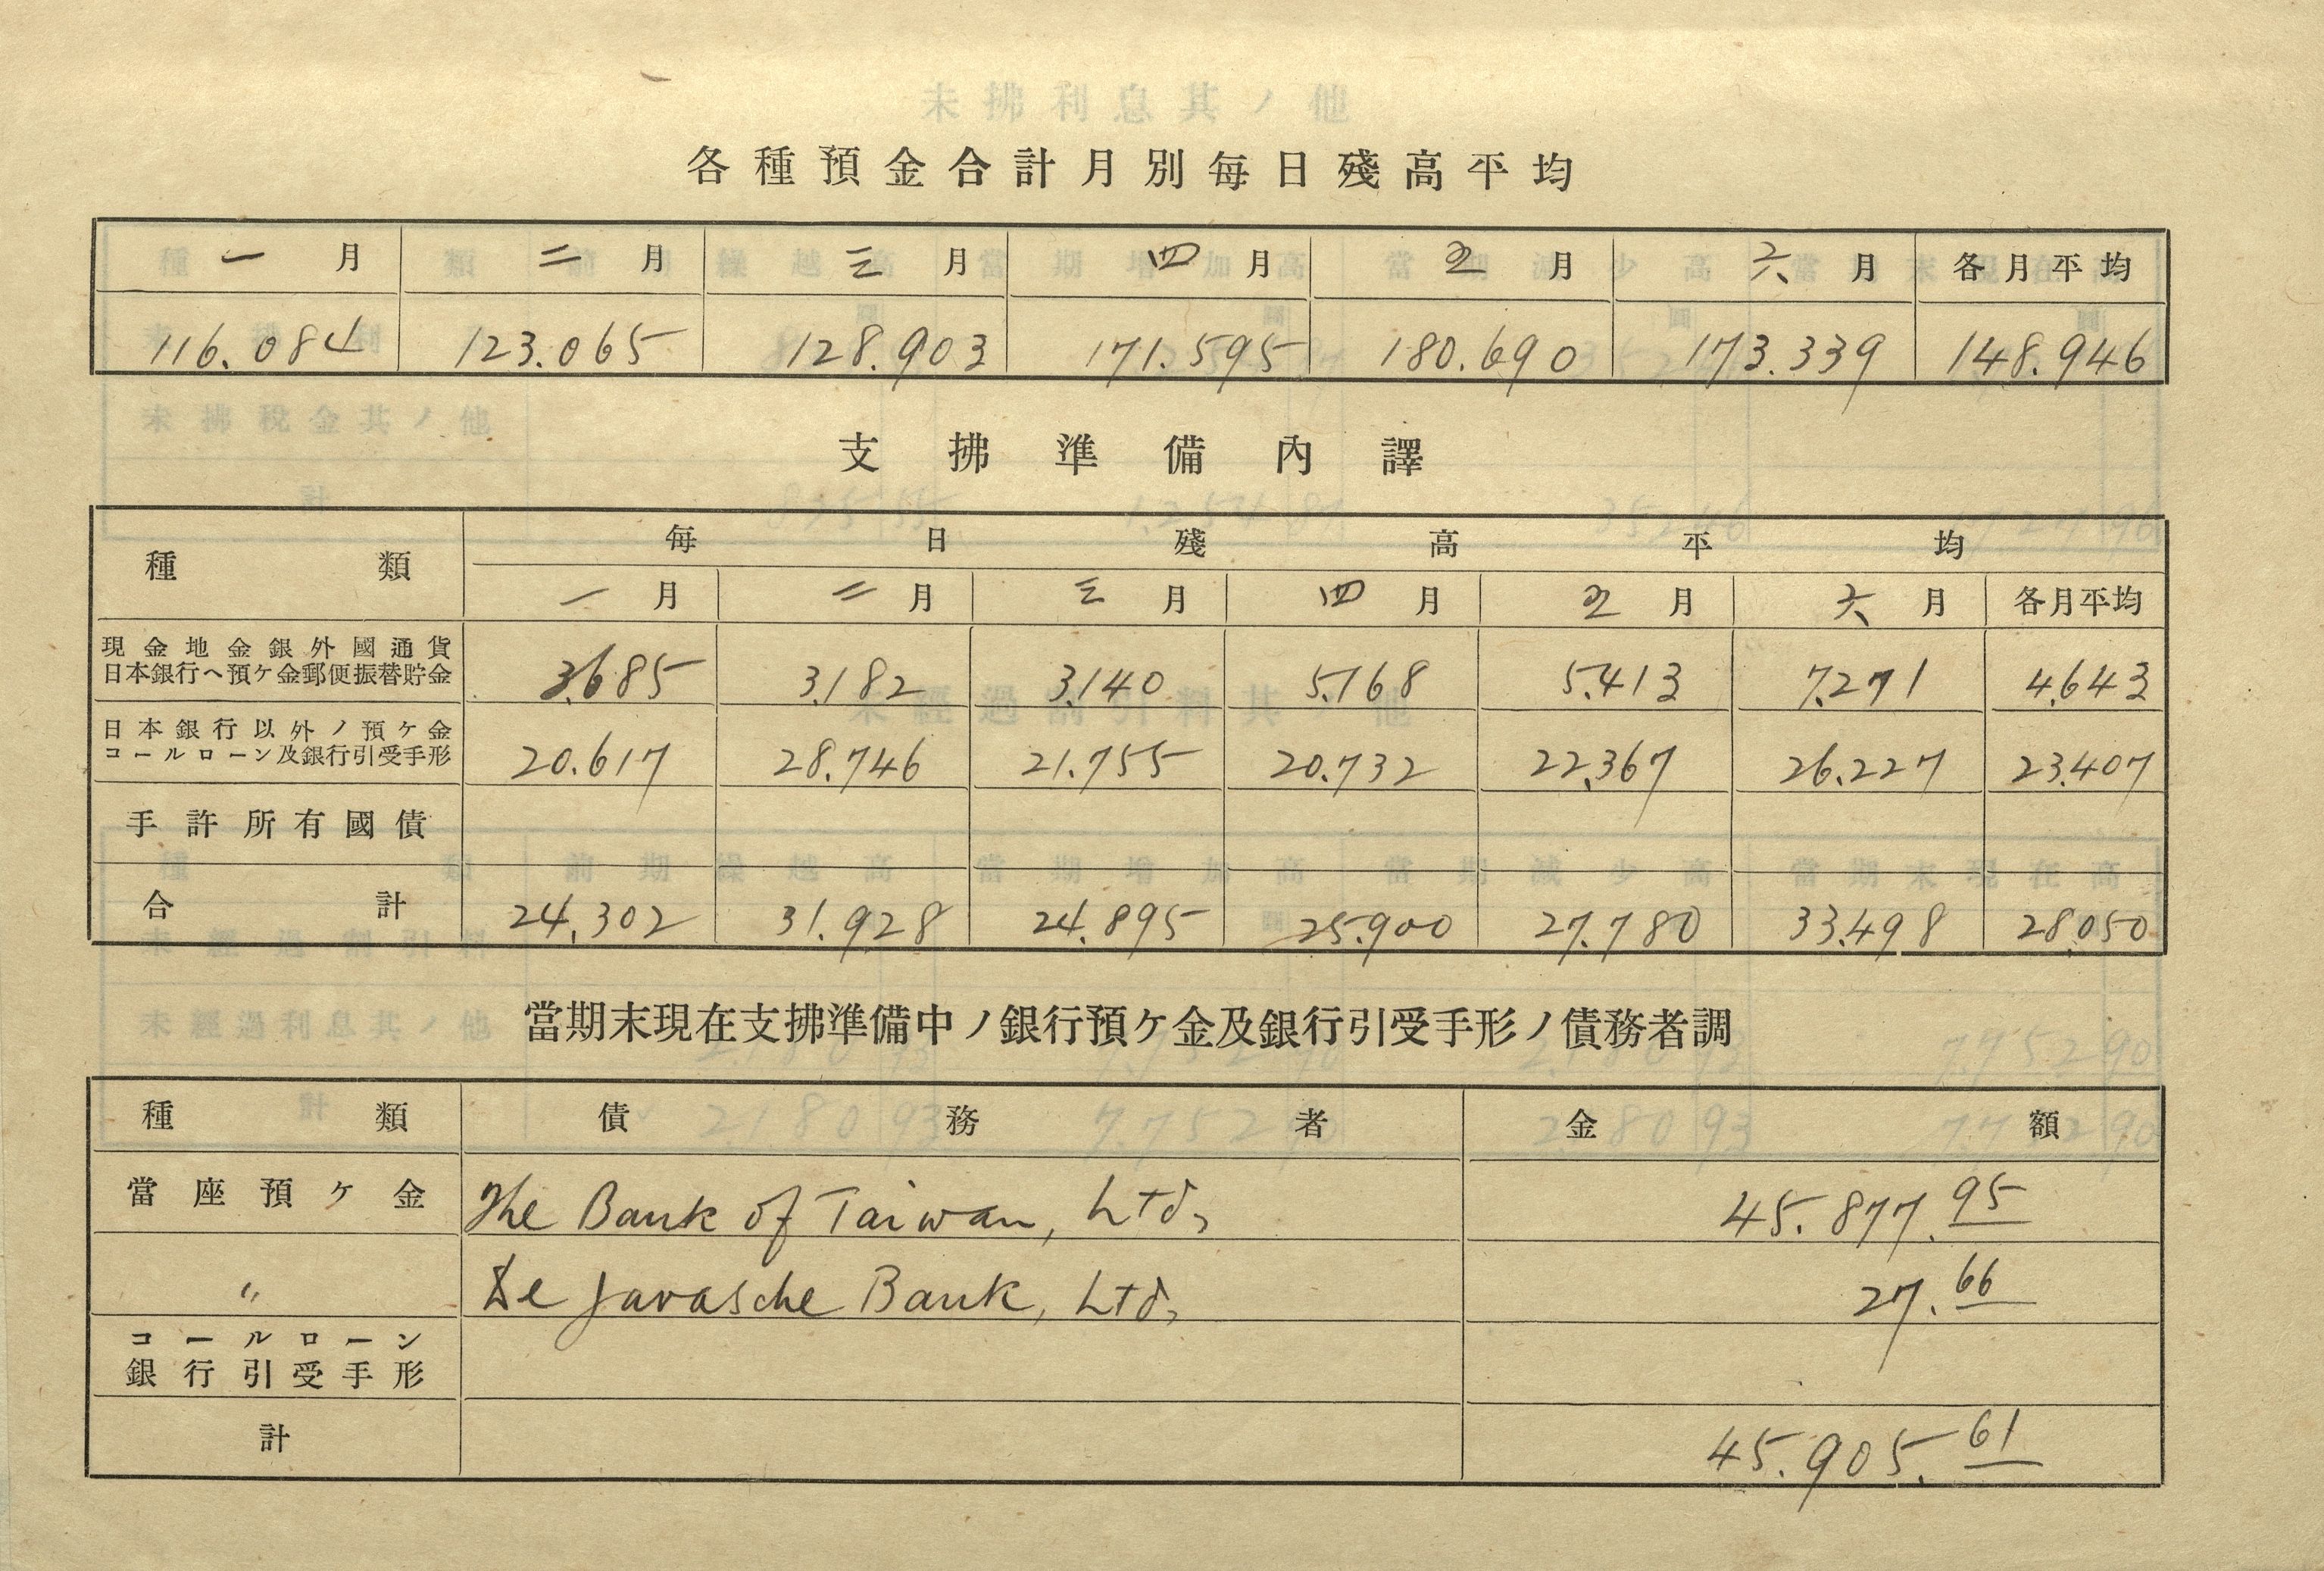 各種預金合計月別毎日殘高平均
一月 二月 三月 四月 五月 六月 各月平均
116.084 123.065 128.903 171.595 180.690 173.339 148.946
支拂準備內譯
種類 毎日殘高平均
一月 二月 三月 四月 五月 六月 各月平均
現金地金銀外國通貨
日本銀行へ預ケ金郵便振替貯金 3.685 3.182 3.140 5.168 5.413 7.271 4.643
日本銀行以外ノ預ケ金
コールローン及銀行引受手形 20.617 28.746 21.755 20.732 22.367 26.227 23.407
手許所有國債
合計 24.302 31.928 24.895 25.900 27.780 33.498 28.050
當期末現在支拂準備中ノ銀行預ケ金及銀行引受手形ノ債務者調
種類 債務者 金額
當座預ケ金 The Bank of Taiwan, Ltd, 45.877.95
〃 De Javasche Bank, Ltd, 27.66
コールローン
銀行引受手形
計 45.905.61